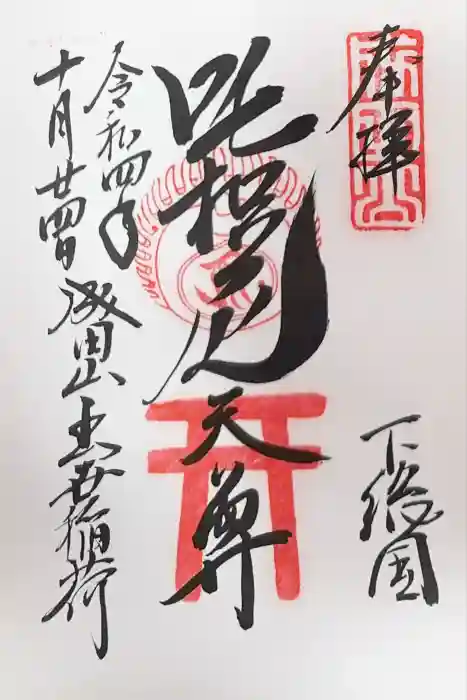 奉拝
下総国
吒枳尼天尊
令和四年
十月廿四日 成田山出世稲荷